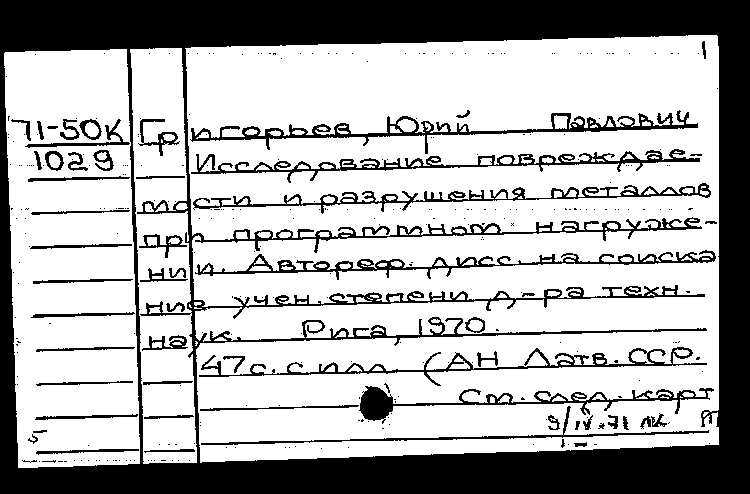 1
71-50К Григорьев, Юрий Павлович
1029 Исследование повреждае-
мости и разрушения металлов
при программном нагруже-
нии. Автореф. дисс. на соиска
ние учен. степени д-ра техн.
наук. Рига, 1970.
47с. с илл (АН Латв. ССР.
См. след. карт
9/IV-71
5